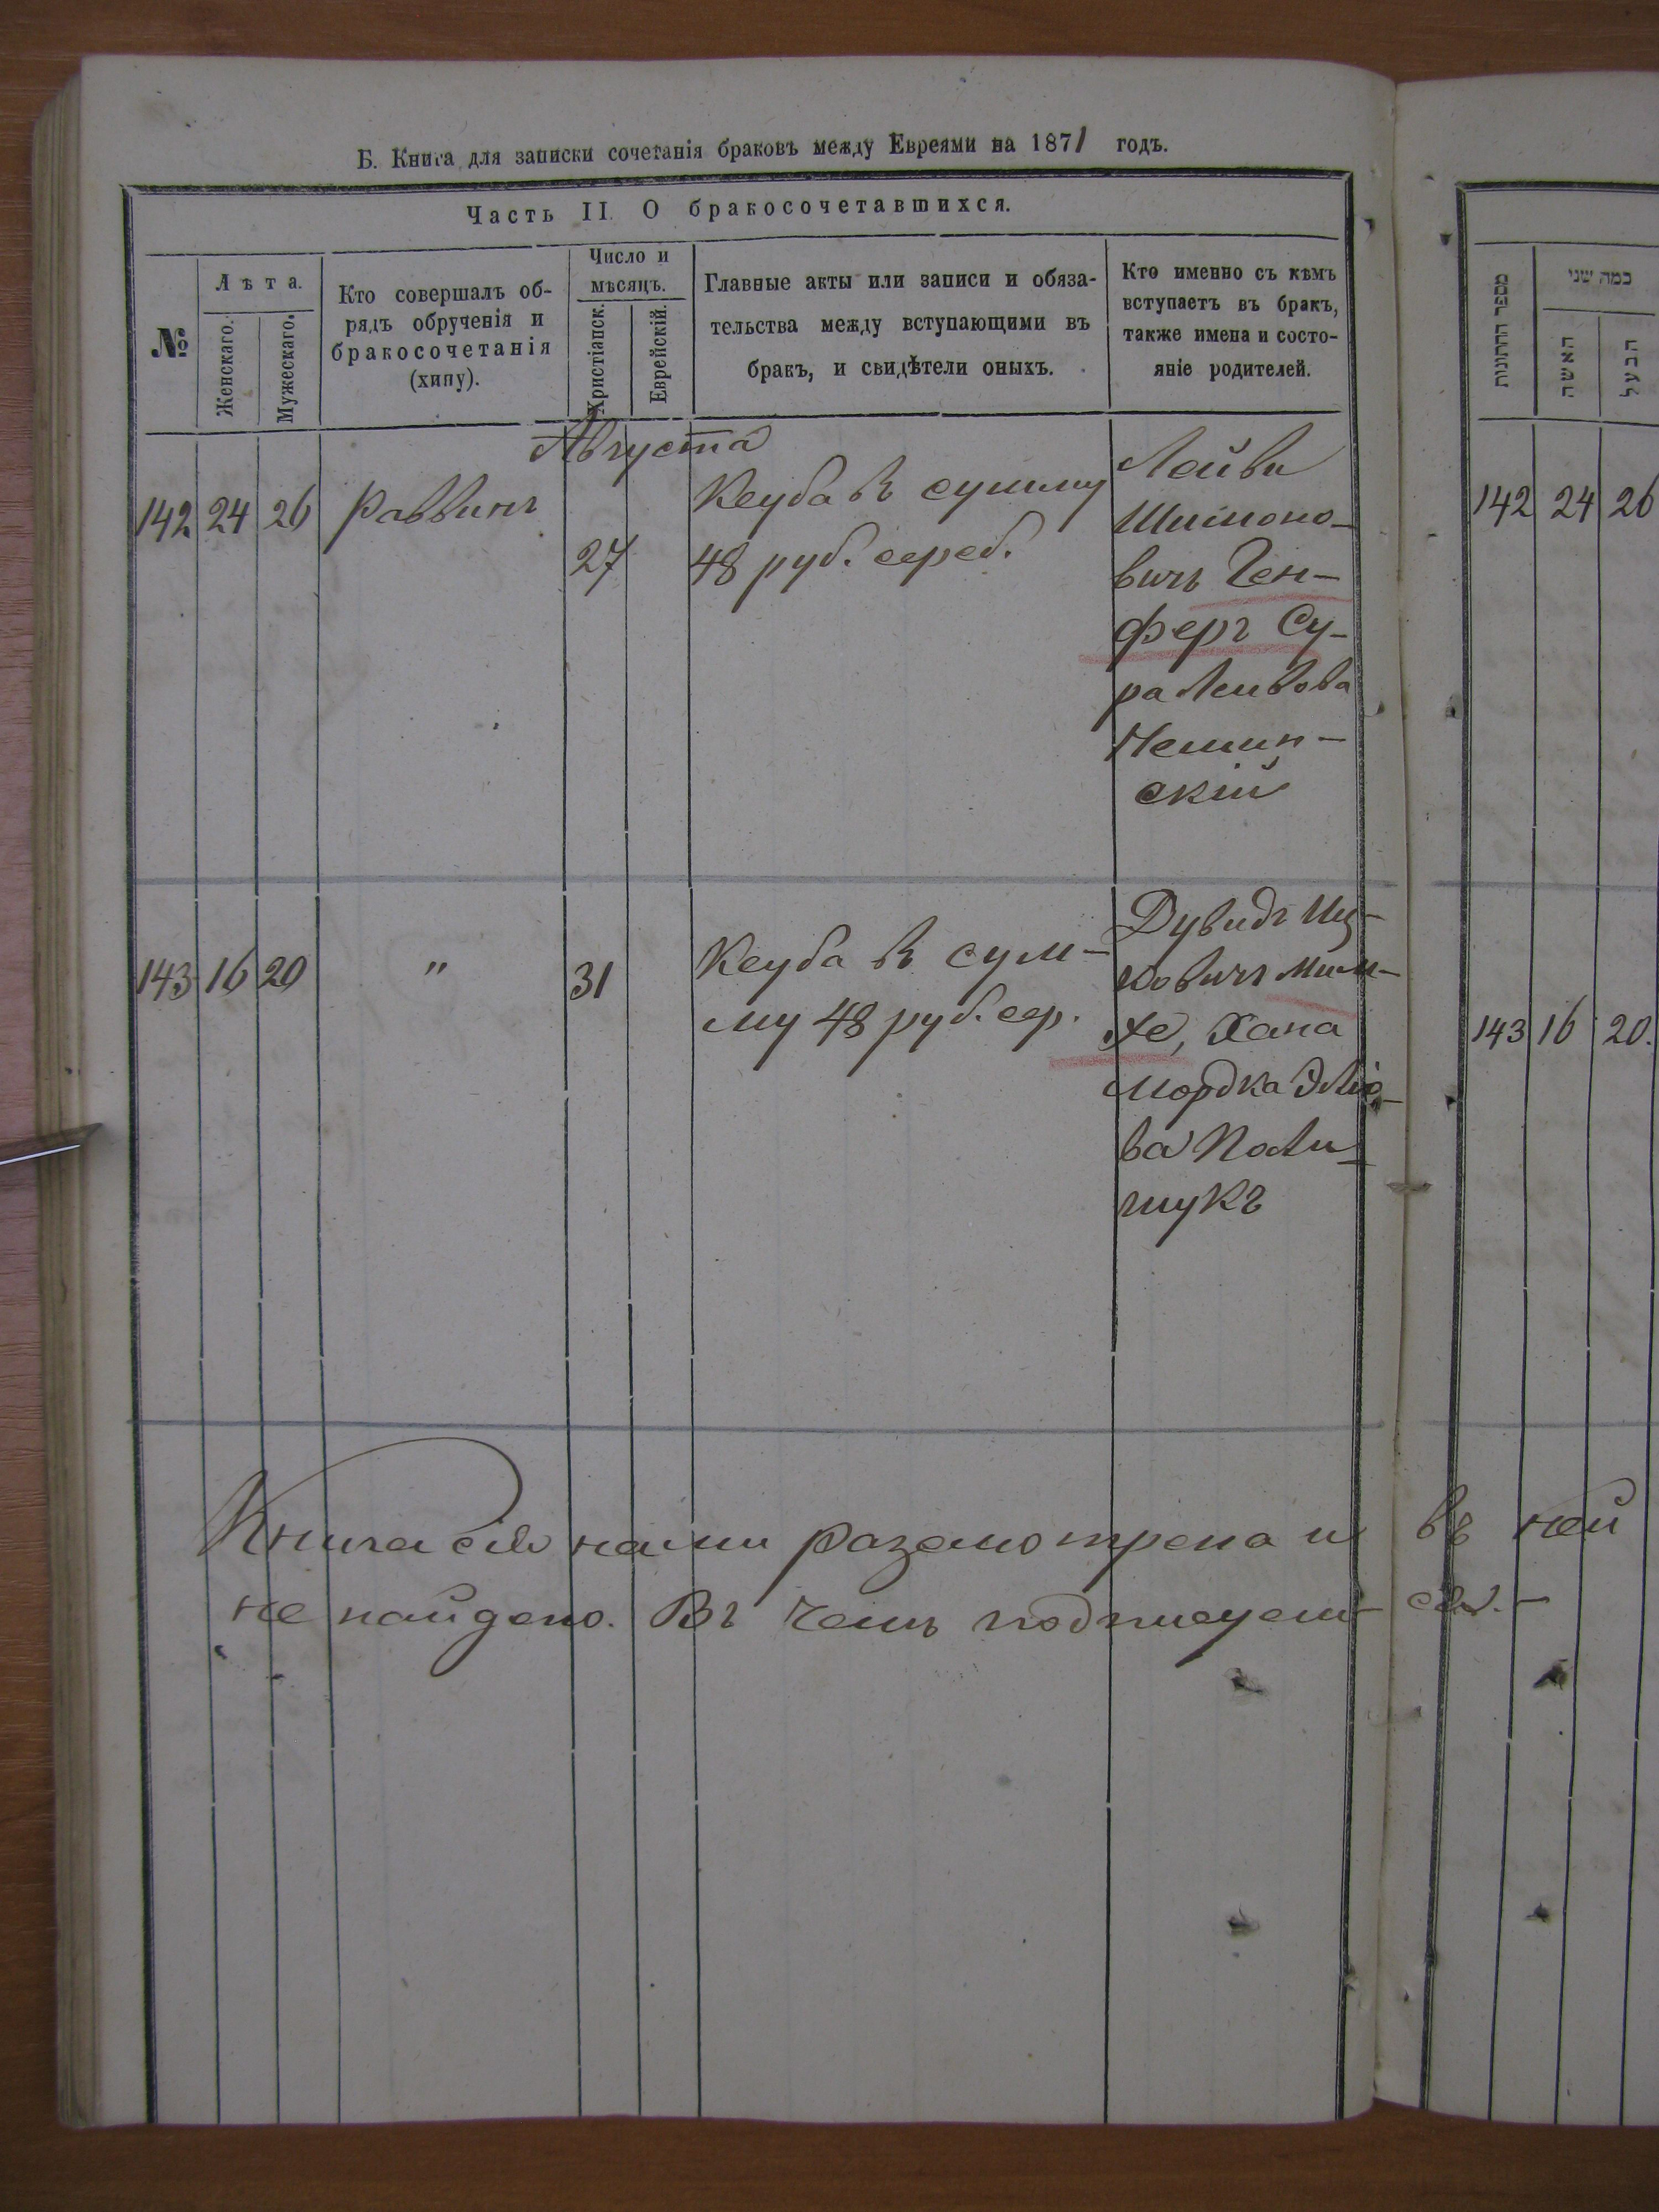 Б. Книга для записки сочетанія браковъ между Евреями на 1871 годъ.
Часть II. О бракосочетавшихся.
№
Лѣта.
Женскаго.
Мужескаго.
Кто совершалъ об-
рядъ обрученія и
бракосочетанія
(хипу).
Число и
мѣсяцъ.
Христіанск.
Еврейскій.
Главные акты или записи и обяза-
тельства между вступающими въ
бракъ, и свидѣтели оныхъ.
Кто именно съ кѣмъ
вступаетъ въ бракъ,
также имена и состо-
яніе родителей.
Августа
142 24 26 Раввинъ 27
Кеуба в сумму
48 руб. сереб.
Лейви
Шлиомо-
вичъ Ген-
феръ Су-
ра Леивова
скій
143 16 20 " 31
Кеуба в сум-
му 48 руб. сер.
Дувидъ Иц-
ковичъ Мил-
хе, Хана
Мордка Эліо-
ва Поли-
щукъ
Книга сія нами разсмотрена и въ ней
не найдено. Въ чемъ подписуем- ся. -
מספר החתונות
כמה שני
האישה
הבעל
142 24 26
143 16 20.